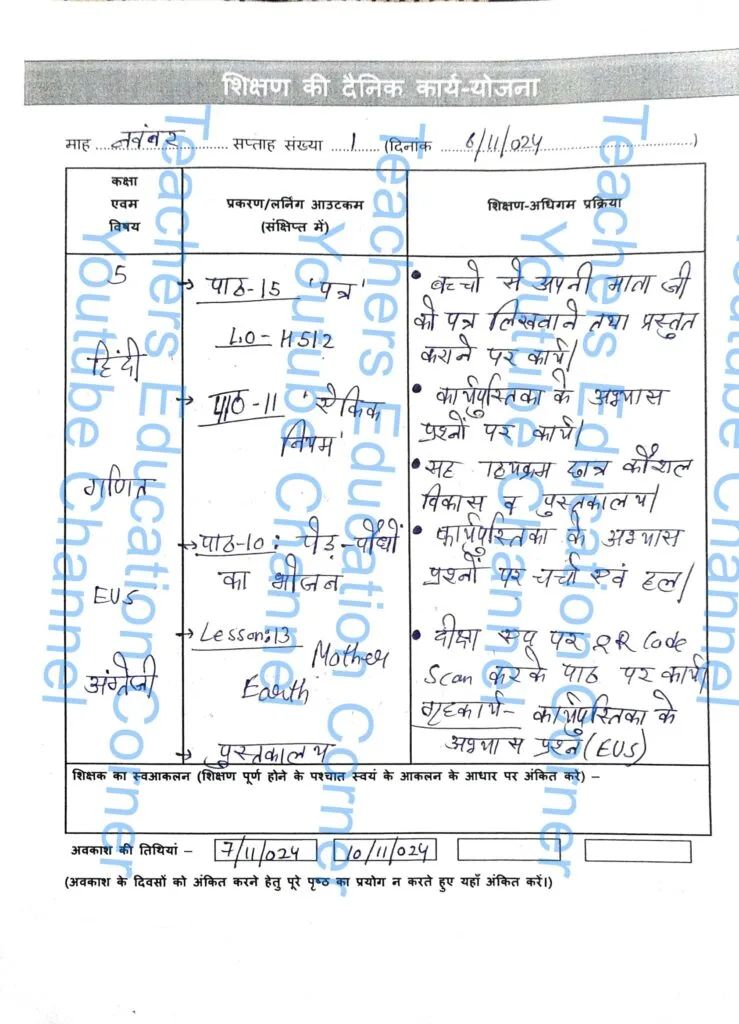 शिक्षण की दैनिक कार्य-योजना
माह नवंबर सप्ताह संख्या 1 (दिनांक 6/11/024 )
कक्षा
एवम
विषय
प्रकरण/लर्निंग आउटकम
(संक्षिप्त में)
शिक्षण-अधिगम प्रक्रिया
5
हिंदी
गणित
EVS
अंग्रेजी
→ पाठ-15 'पत्र'
L.O- H512
→ पाठ-11 'ऐकिक
नियम'
→ पाठ-10: पेड़-पौधों
का भोजन
→ Lesson:13
Mother
Earth
→ पुस्तकालय
• बच्चो से अपनी माता जी
को पत्र लिखवाने तथा प्रस्तुत
कराने पर कार्य।
• कार्यपुस्तिका के अभ्यास
प्रश्नों पर कार्य।
• सह पाठ्यक्रम छात्र कौशल
विकास व पुस्तकालय।
• कार्यपुस्तिका के अभ्यास
प्रश्नों पर चर्चा एवं हल।
• दीक्षा एप पर QR Code
Scan करके पाठ पर कार्य।
गृहकार्य- कार्यपुस्तिका के
अभ्यास प्रश्न (EVS)
शिक्षक का स्वआकलन (शिक्षण पूर्ण होने के पश्चात स्वयं के आकलन के आधार पर अंकित करे) –
अवकाश की तिथियां – 7/11/024 10/11/024
(अवकाश के दिवसों को अंकित करने हेतु पूरे पृष्ठ का प्रयोग न करते हुए यहाँ अंकित करें।)
Teachers Education Corner
Youtube Channel
Teachers Education Corner
Youtube Channel
Teachers Education Corner
Youtube Channel
Youtube Channel